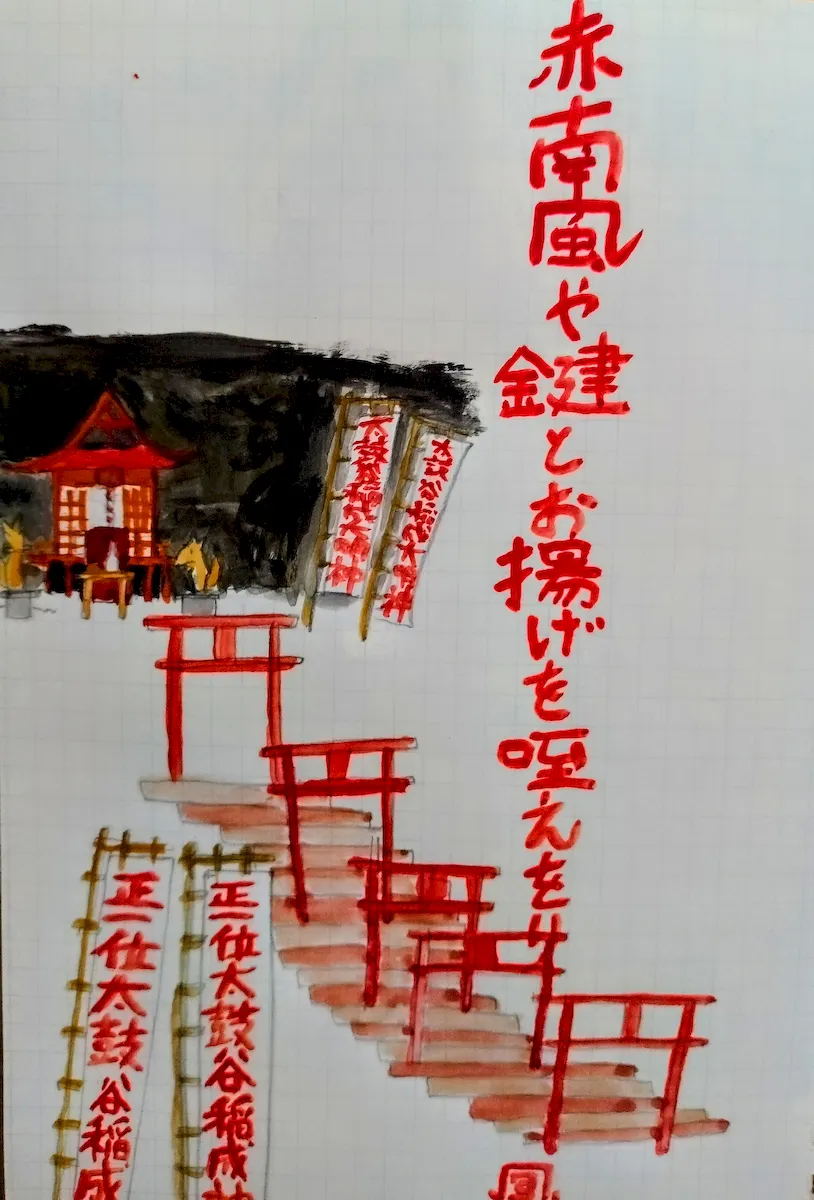 赤南風や鍵とお揚げを咥えをり
太鼓谷稲成大明神
太鼓谷稲成大明神
正一位太鼓谷稲成神
正一位太鼓谷稲成